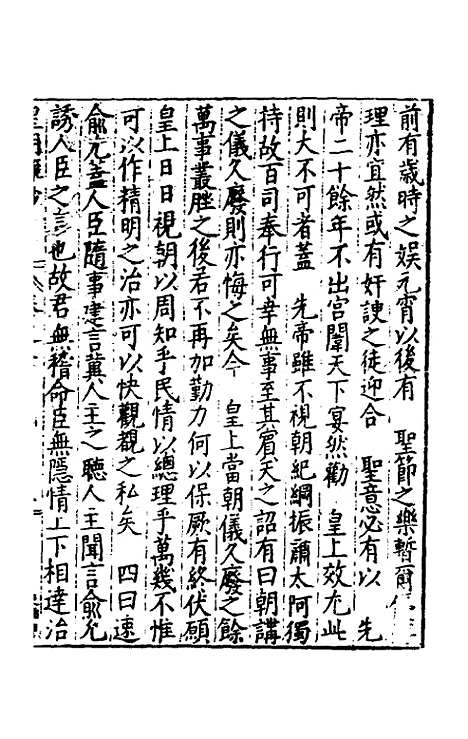 前有歲時之娛元宵以後有　聖節之樂暫爾
理亦宜然或有奸諛之徒迎合　聖意必有以　先
帝二十餘年不出宮闈天下宴然勸　皇上效尤此
則大不可者蓋　先帝雖不視朝紀綱振肅太阿獨
持故百司奉行可幸無事至其賓天之詔有曰朝講
之儀久廢則亦悔之矣今　皇上當朝儀久廢之餘
萬事叢脞之後若不再加勤力何以保厥有終伏願
皇上日日視朝以周知乎民情以總理乎萬幾不惟
可以作精明之治亦可以快觀覩之私矣　四曰速
俞允蓋人臣隨事建言冀人主之聽人主聞言俞允
誘人臣之言也故君無稽命臣無隱情上下相達治